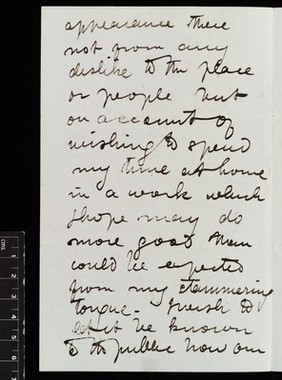 appearance there
not from any
dislike to the place
or people but
on account of
wishing to spend
my time at home
in a work which
I hope may do
more good than
could be expected
from my stammering
tongue - I wish to
let it be known
to the public how our